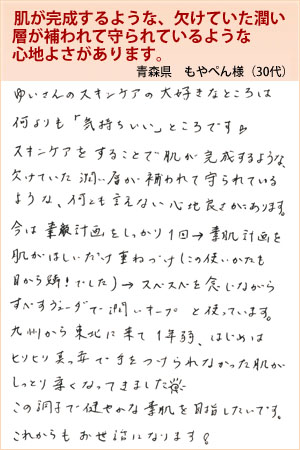 肌が完成するような、欠けていた潤い
層が補われて守られているような
心地よさがあります。
青森県 もやぺん様（30代）
ゆいさんのスキンケアの大好きなところは
何よりも「気持ちいい」ところです
スキンケアをすることで肌が完成するような、
欠けていた潤い層が補われて守られている
ような、何とも言えない心地良さがあります。
今は素肌計画をしっかり1回→素肌計画を
肌がほしいだけ重ねづけ(この使いかたも
目から鱗!でした)→スベスベを念じながら
すべすうーダで潤いキープ と使っています。
九州から東北に来て1年弱、はじめは
ヒリヒリ真っ赤で手をつけられなかった肌が
しっとり柔くなってきました
この調子で健やかな素肌を目指したいです。
これからもお世話になります!